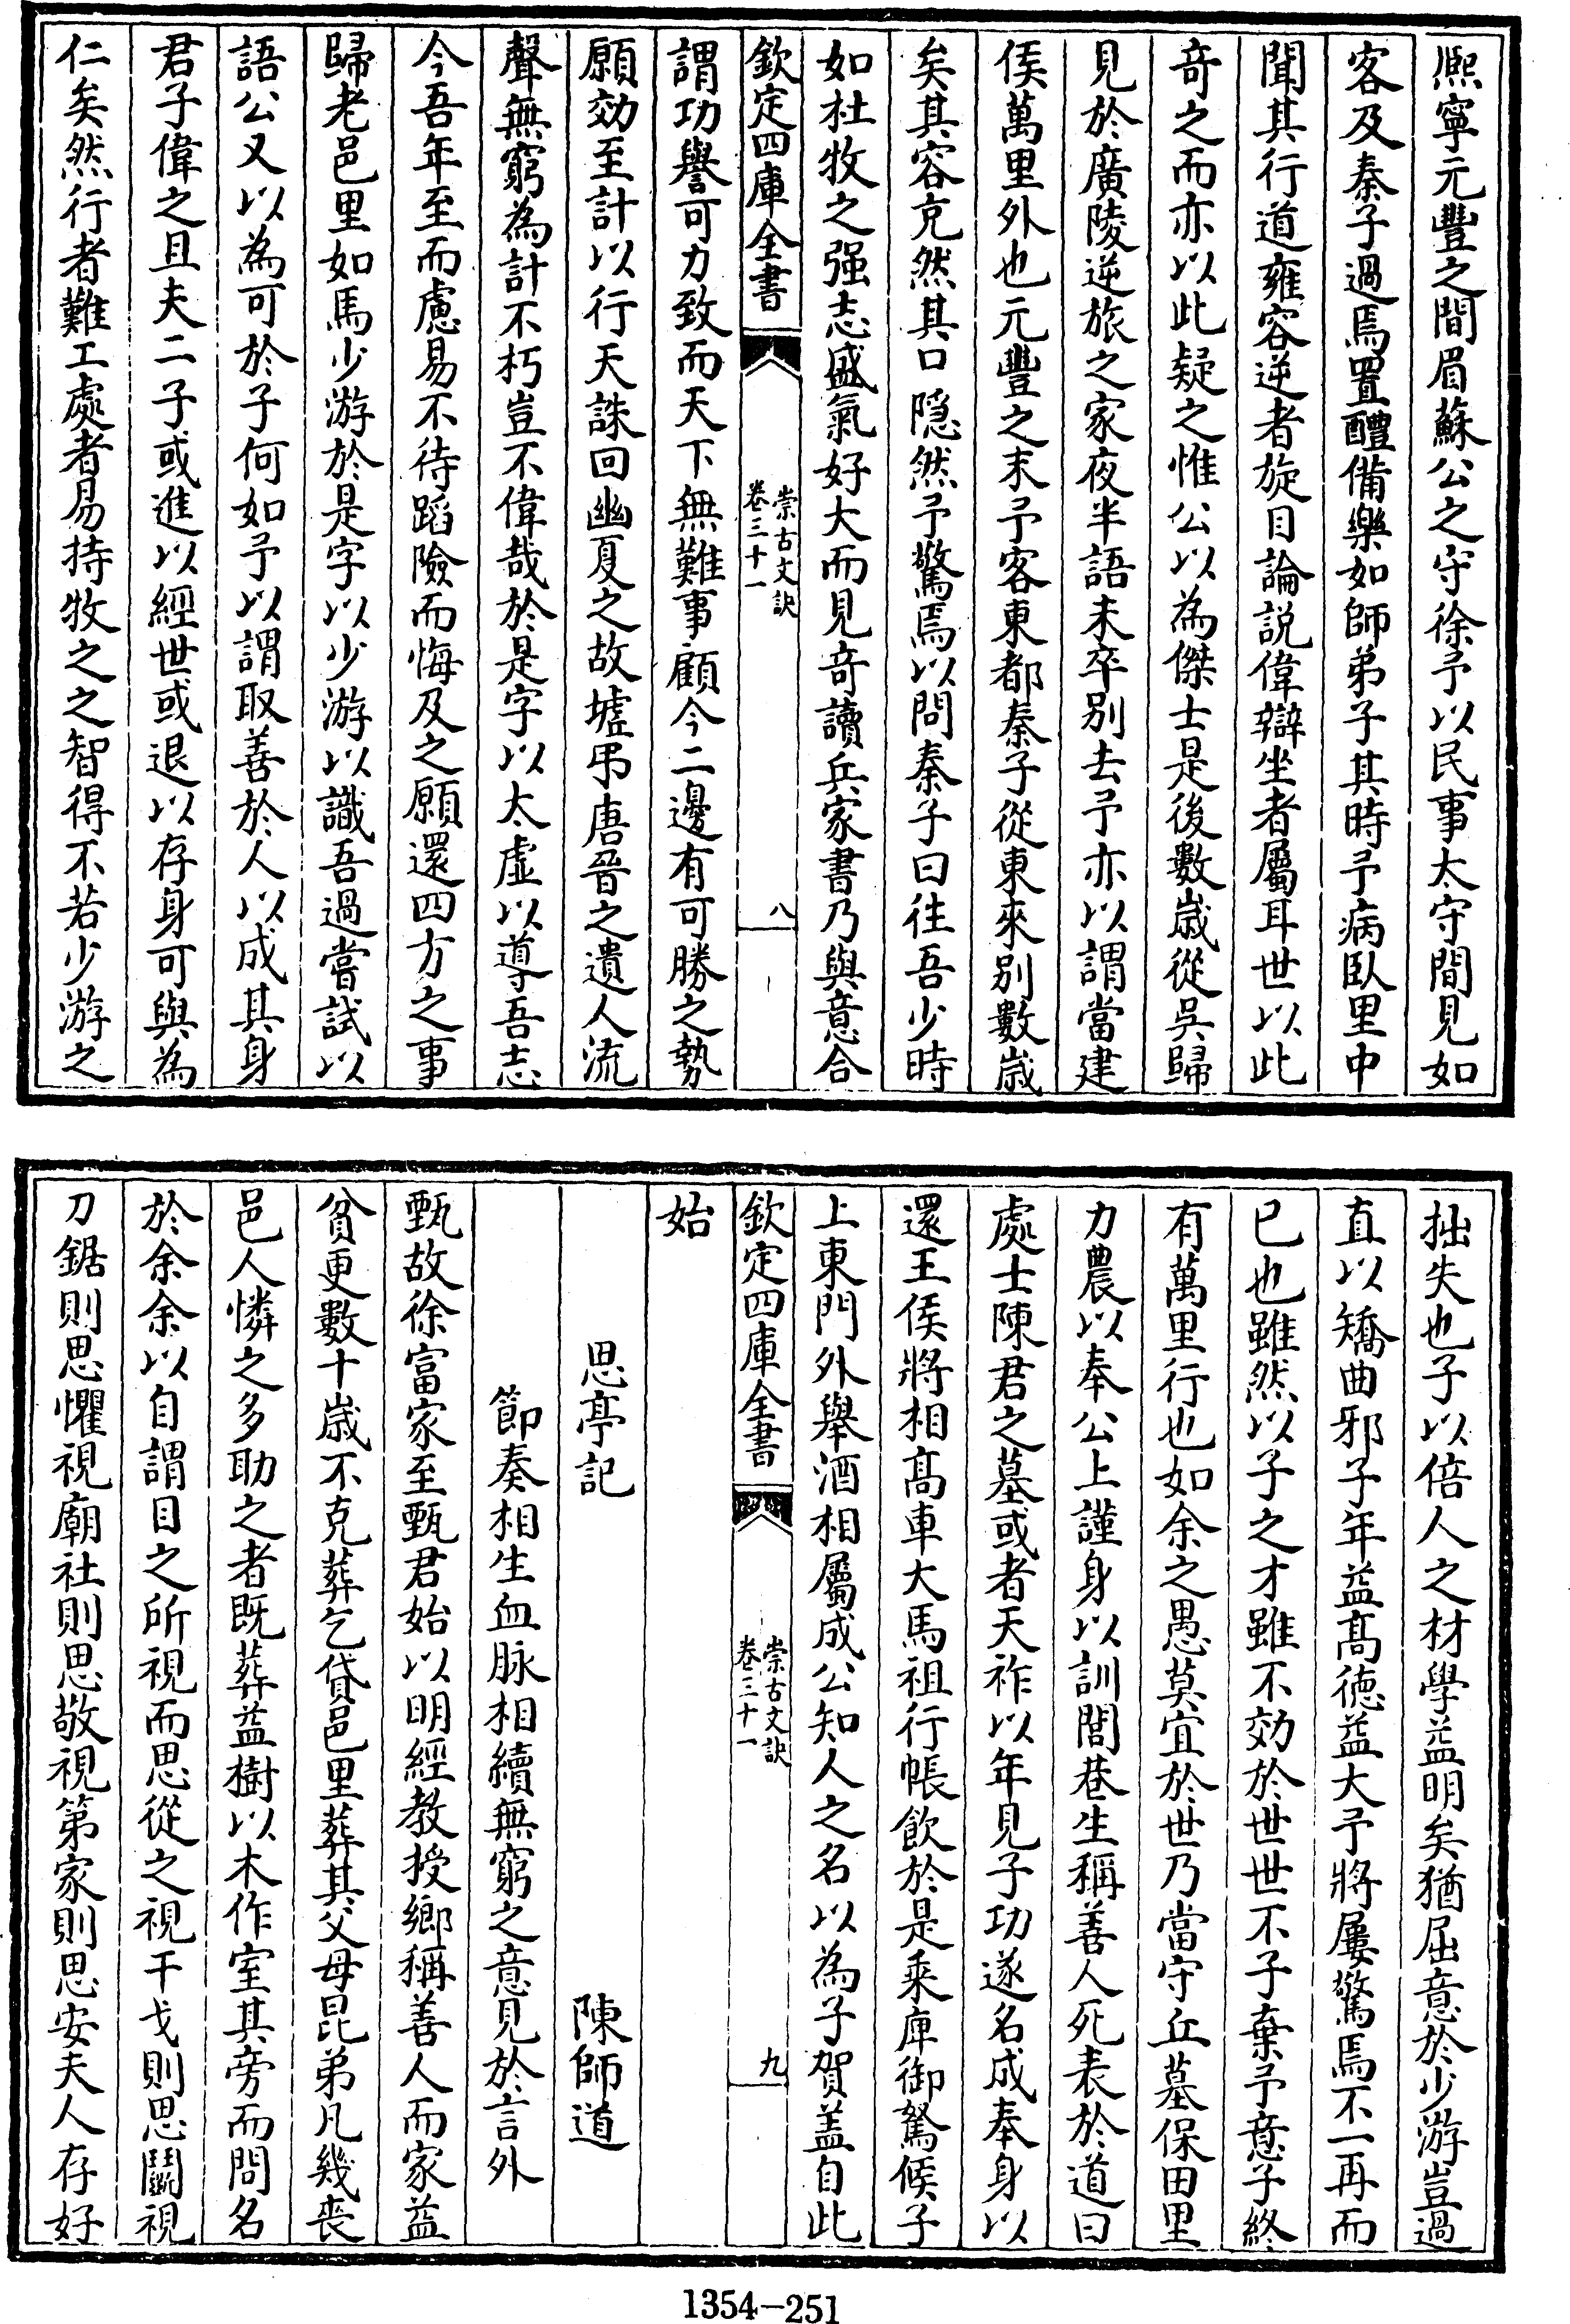 熈寧元豐之間眉蘇公之守徐予以民事太守間見如
客及秦子過焉置醴備樂如師弟子其時予病臥里中
聞其行道雍容逆者旋目論説偉辯坐者屬耳世以此
竒之而亦以此疑之惟公以為傑士是後數嵗從吳歸
見於廣陵逆旅之家夜半語未卒别去予亦以謂當建
侯萬里外也元豐之末予客東都秦子從東來别數嵗
矣其容充然其口隠然予驚焉以問秦子曰往吾少時
如杜牧之强志盛氣好大而見竒讀兵家書乃與意合
欽定四庫全書
崇古文訣
卷三十一
八
謂功譽可力致而天下無難事顧今二邊有可勝之勢
願効至計以行天誅回幽夏之故墟弔唐晉之遺人流
聲無窮為計不朽豈不偉哉於是字以太虚以導吾志
今吾年至而慮易不待蹈險而悔及之願還四方之事
歸老邑里如馬少游於是字以少游以識吾過嘗試以
語公又以為可於子何如予以謂取善於人以成其身
君子偉之且夫二子或進以經世或退以存身可與為
仁矣然行者難工處者易持牧之之智得不若少游之
拙失也子以倍人之材學益明矣猶屈意於少游豈過
直以矯曲邪子年益髙徳益大予將屢驚焉不一再而
已也雖然以子之才雖不効於世世不子棄予意子終
有萬里行也如余之愚莫宜於世乃當守丘墓保田里
力農以奉公上謹身以訓閭巷生稱善人死表於道曰
處士陳君之墓或者天祚以年見子功遂名成奉身以
還王侯將相髙車大馬祖行帳飲於是乘庳御駑候子
上東門外舉酒相屬成公知人之名以為子賀盖自此
欽定四庫全書
崇古文訣
卷三十一
九
始
思亭記　陳師道
節奏相生血脉相續無窮之意見於言外
甄故徐富家至甄君始以明經教授鄉稱善人而家益
貧更數十嵗不克葬乞貸邑里葬其父母昆弟凡幾喪
邑人憐之多助之者既葬益樹以木作室其旁而問名
於余余以自謂目之所視而思從之視干戈則思鬭視
刀鋸則思懼視廟社則思敬視第家則思安夫人存好
1354-251